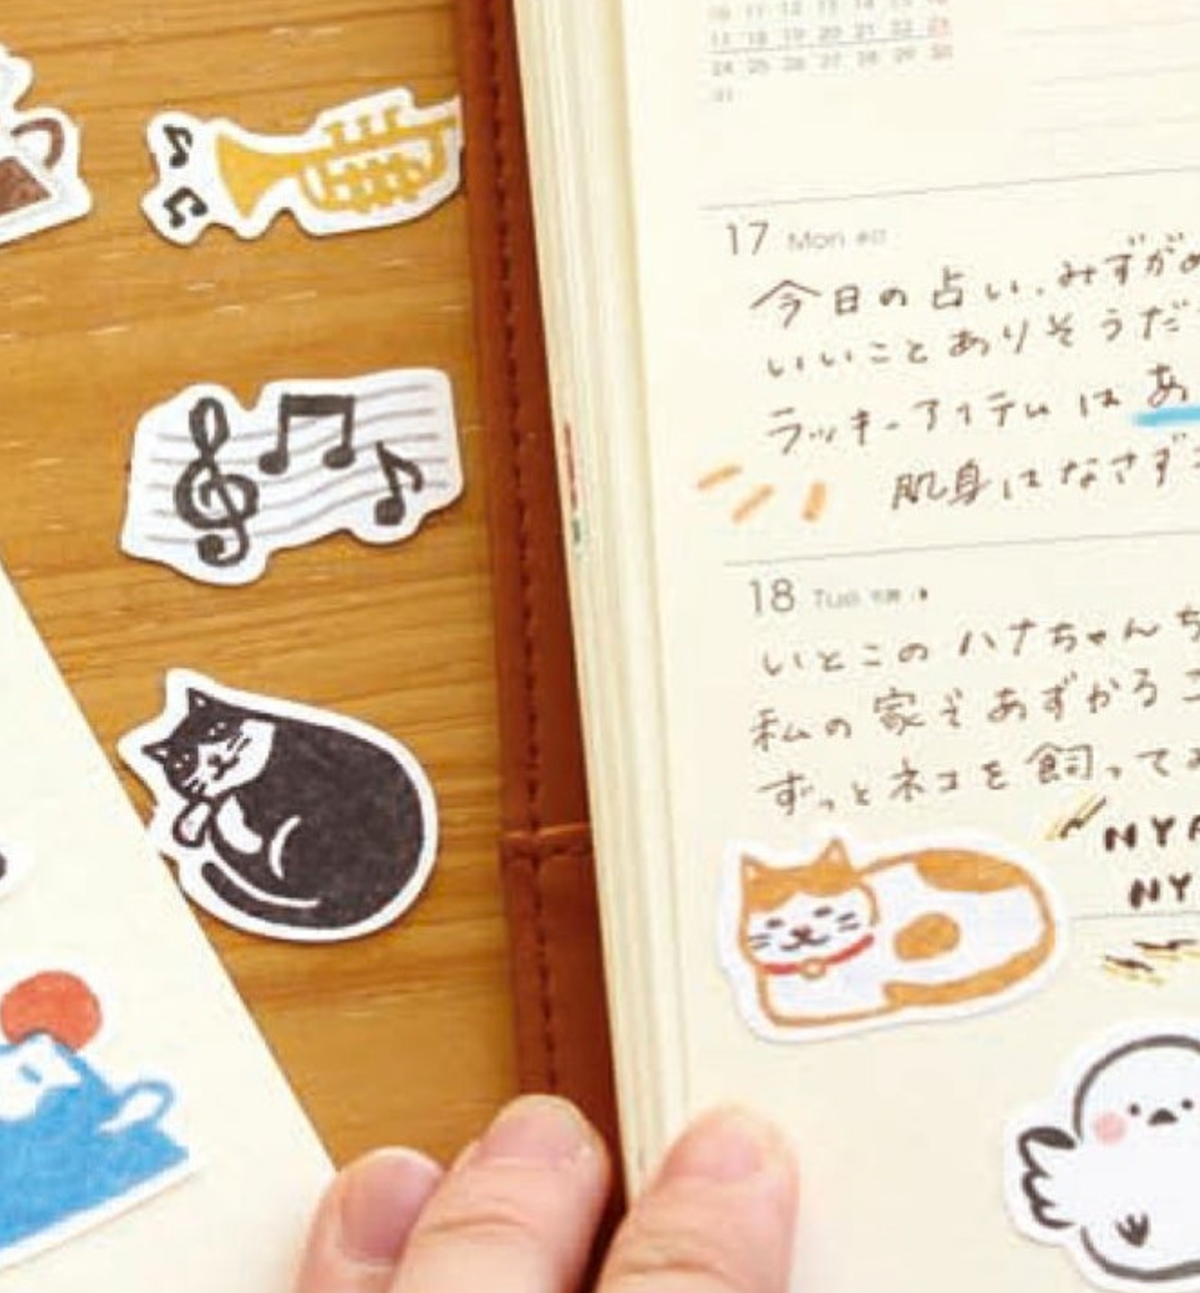 10 11 12 13 14 15 16
17 18 19 20 21 22 23
24 25 26 27 28 29 30
31
17 Mon
今日の占い、みずがめ
いいことありそうだ
ラッキーアイテムは あ
肌身はなさず
18 Tue
いとこのハナちゃんち
私の家であずかるこ
ずっとネコを飼ってみ
NYA
NY